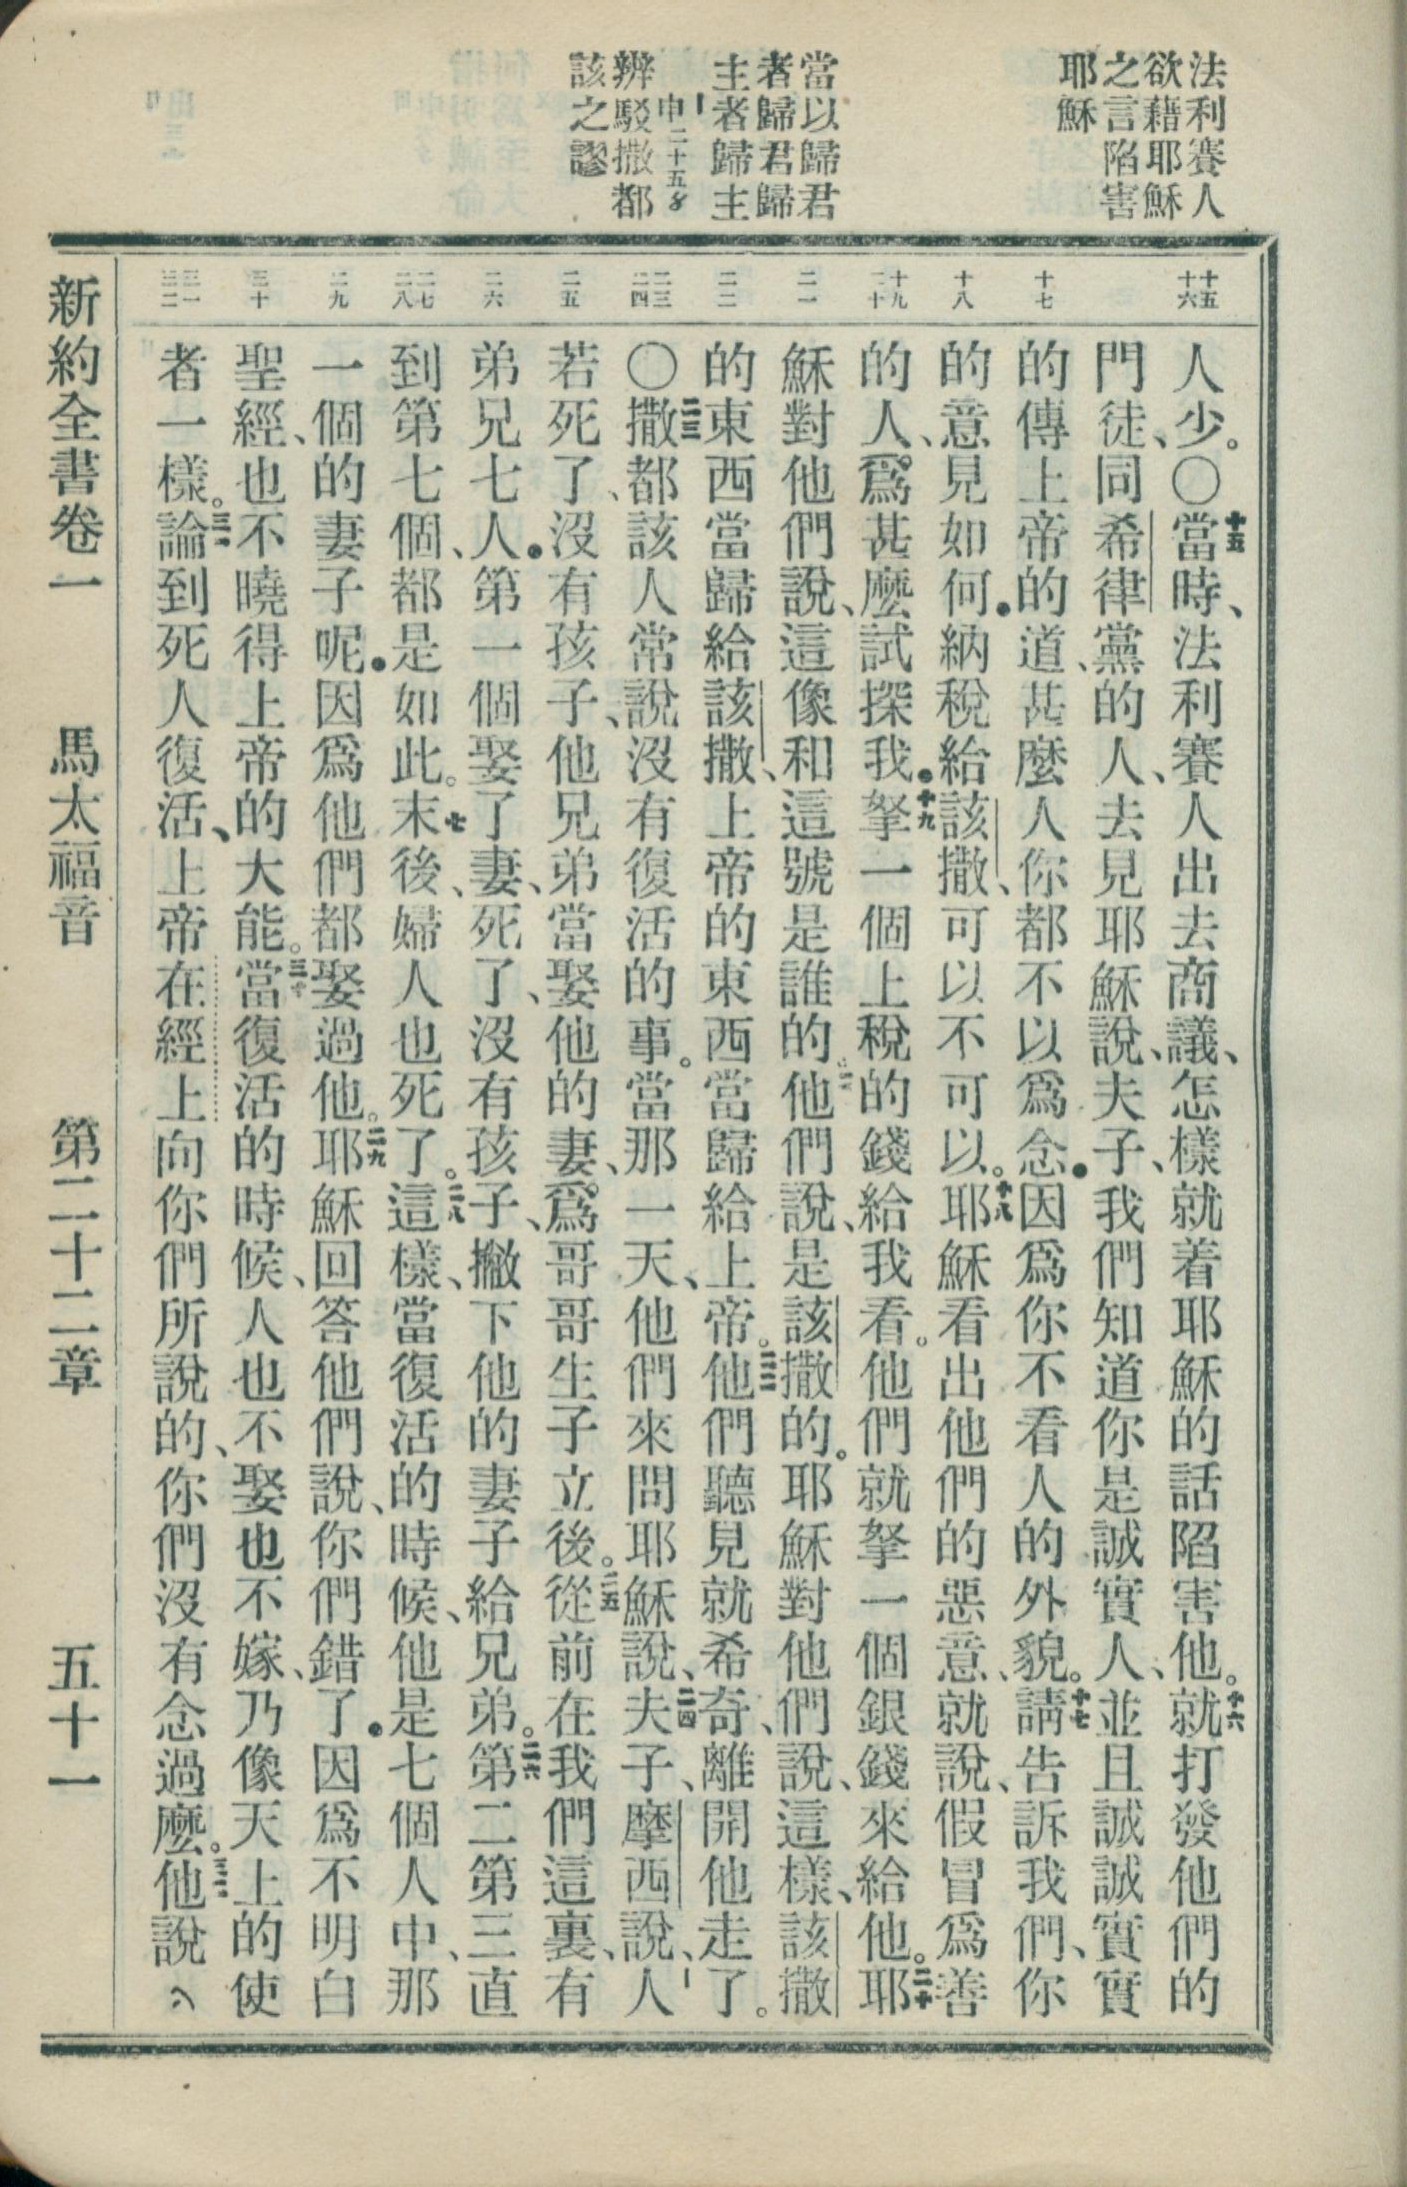 法利賽人
欲藉耶穌
之言陷害
耶穌
當以歸君
者歸君歸
主者歸主
申二十五8
辨駁撒都
該之謬
十五
十六
十七
十八
十九
二十
二一
二二
二三
二四
二五
二六
二七
二八
二九
三十
三一
三二
人少。〇十五當時、法利賽人出去商議、怎樣就着耶穌的話陷害他。十六就打發他們的
門徒、同希律黨的人、去見耶穌說、夫子、我們知道你是誠實人、並且誠誠實實
的傳上帝的道、甚麼人你都不以爲念.因爲你不看人的外貌。十七請告訴我們、你
的意見如何.納稅給該撒、可以不可以。十八耶穌看出他們的惡意、就說、假冒爲善
的人、爲甚麼試探我.十九拏一個上稅的錢給我看。他們就拏一個銀錢來給他。二十耶
穌對他們說、這像和這號是誰的。二一他們說、是該撒的。耶穌對他們說、這樣、該撒
的東西當歸給該撒、上帝的東西當歸給上帝。二二他們聽見就希奇、離開他走了。
〇二三撒都該人常說沒有復活的事。當那一天、他們來問耶穌說、二四夫子、摩西說、人
若死了、沒有孩子、他兄弟當娶他的妻、爲哥哥生子立後。二五從前在我們這裏、有
弟兄七人.第一個娶了妻、死了、沒有孩子、撇下他的妻子給兄弟。二六第二第三直
到第七個、都是如此。七末後、婦人也死了。二八這樣、當復活的時候、他是七個人中、那
一個的妻子呢.因爲他們都娶過他。二九耶穌回答他們說、你們錯了.因爲不明白
聖經、也不曉得上帝的大能。三十當復活的時候、人也不娶也不嫁、乃像天上的使
者一樣。三一論到死人復活、上帝在經上向你們所說的、你們沒有念過麼。三二他說
新約全書卷一 馬太福音 第二十二章 五十一